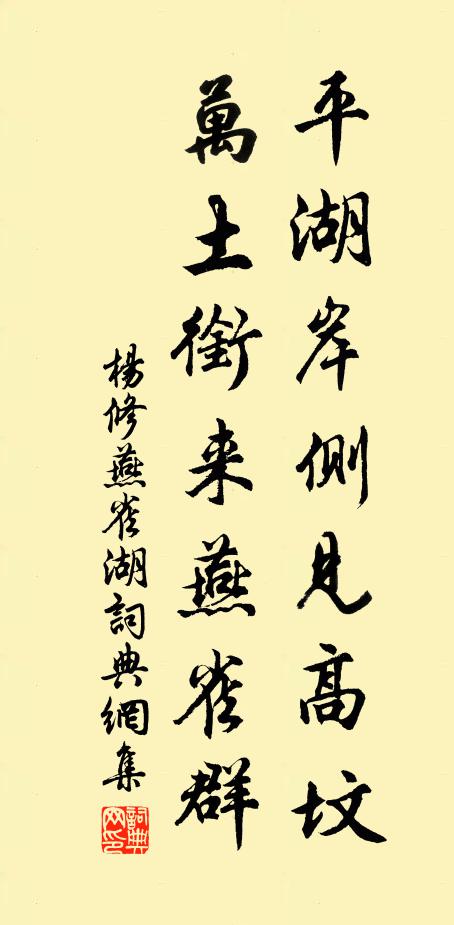 平湖岸側見高墳
萬土銜来燕雀群
楊修燕雀湖詞典網集
詞典網印